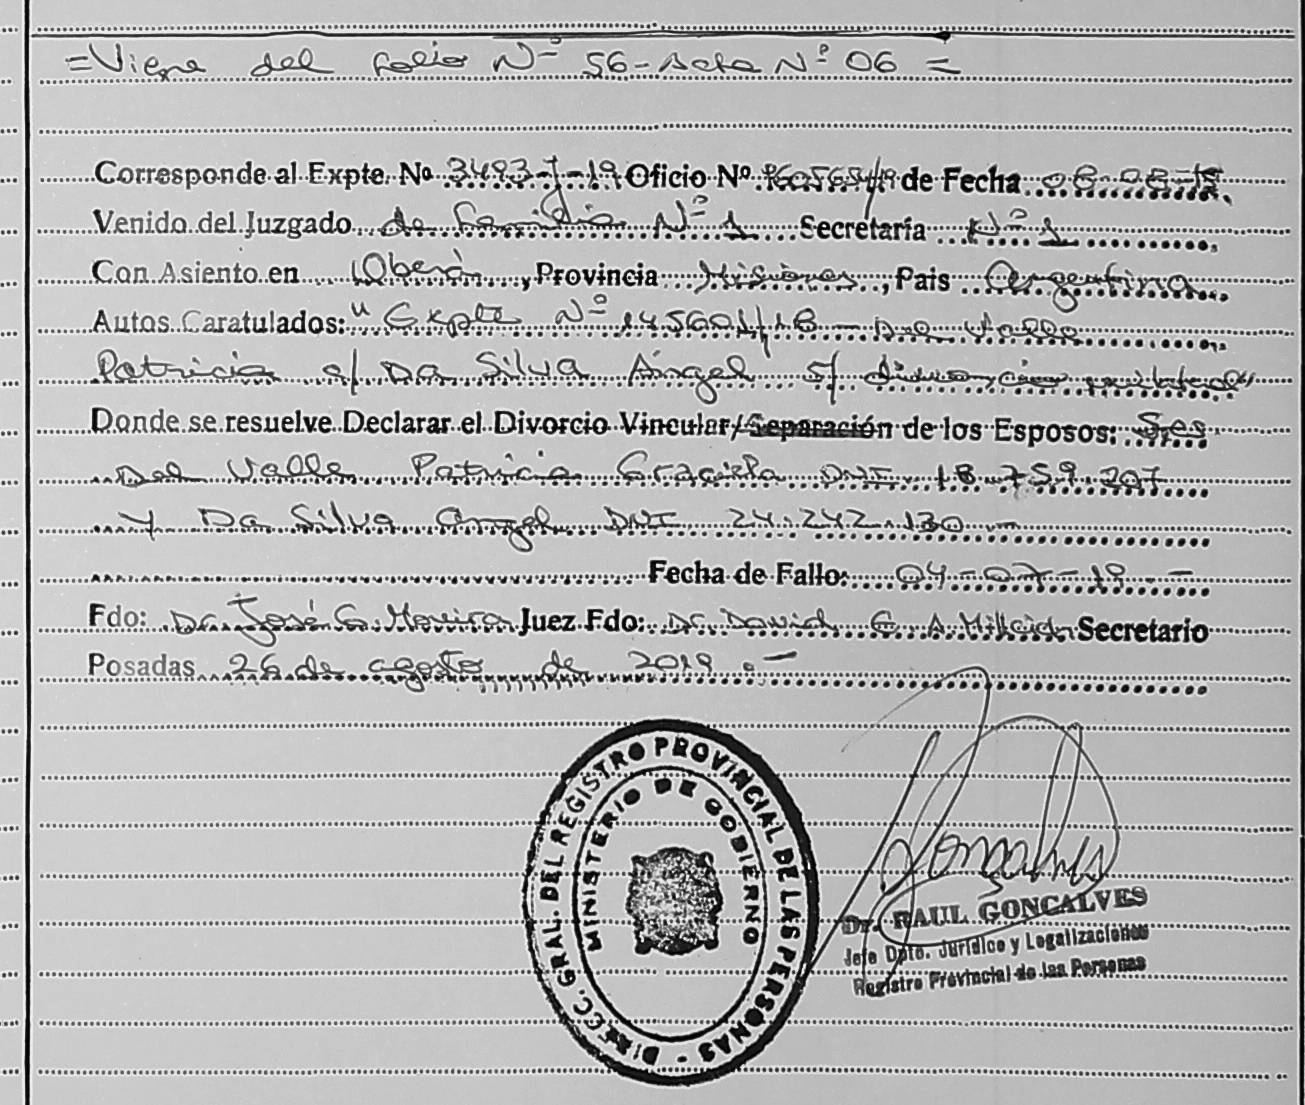 =Viene del folio Nº 56-Acta Nº 06 =
Corresponde al Expte. Nº 3493-J-19 Oficio Nº de Fecha 08-08-19
Venido del Juzgado de Familia Nº 1 Secretaría Nº 1
Con Asiento en Oberá, Provincia Misiones, Pais Argentina
Autos Caratulados: "Expte Nº 145601/18 - Del Valle
Patricia c/ Da Silva Ángel s/ divorcio unilateral"
Donde se resuelve Declarar el Divorcio Vincular/Separación de los Esposos: Sres
Del Valle Patricia Graciela DNI 18.759.207
Y Da Silva Angel DNI 24.242.130 -
Fecha de Fallo: 04-07-19.-
Fdo: Dr. José G. Moreira Juez Fdo: Dr. David E. A. Secretario
Posadas 26 de agosto de 2019.-
DIRECC. GRAL. DEL REGISTRO PROVINCIAL DE LAS PERSONAS -
MINISTERIO DE GOBIERNO
Dr. RAUL GONCALVES
Jefe Dpto. Jurídico y Legalizaciones
Registro Provincial de las Personas